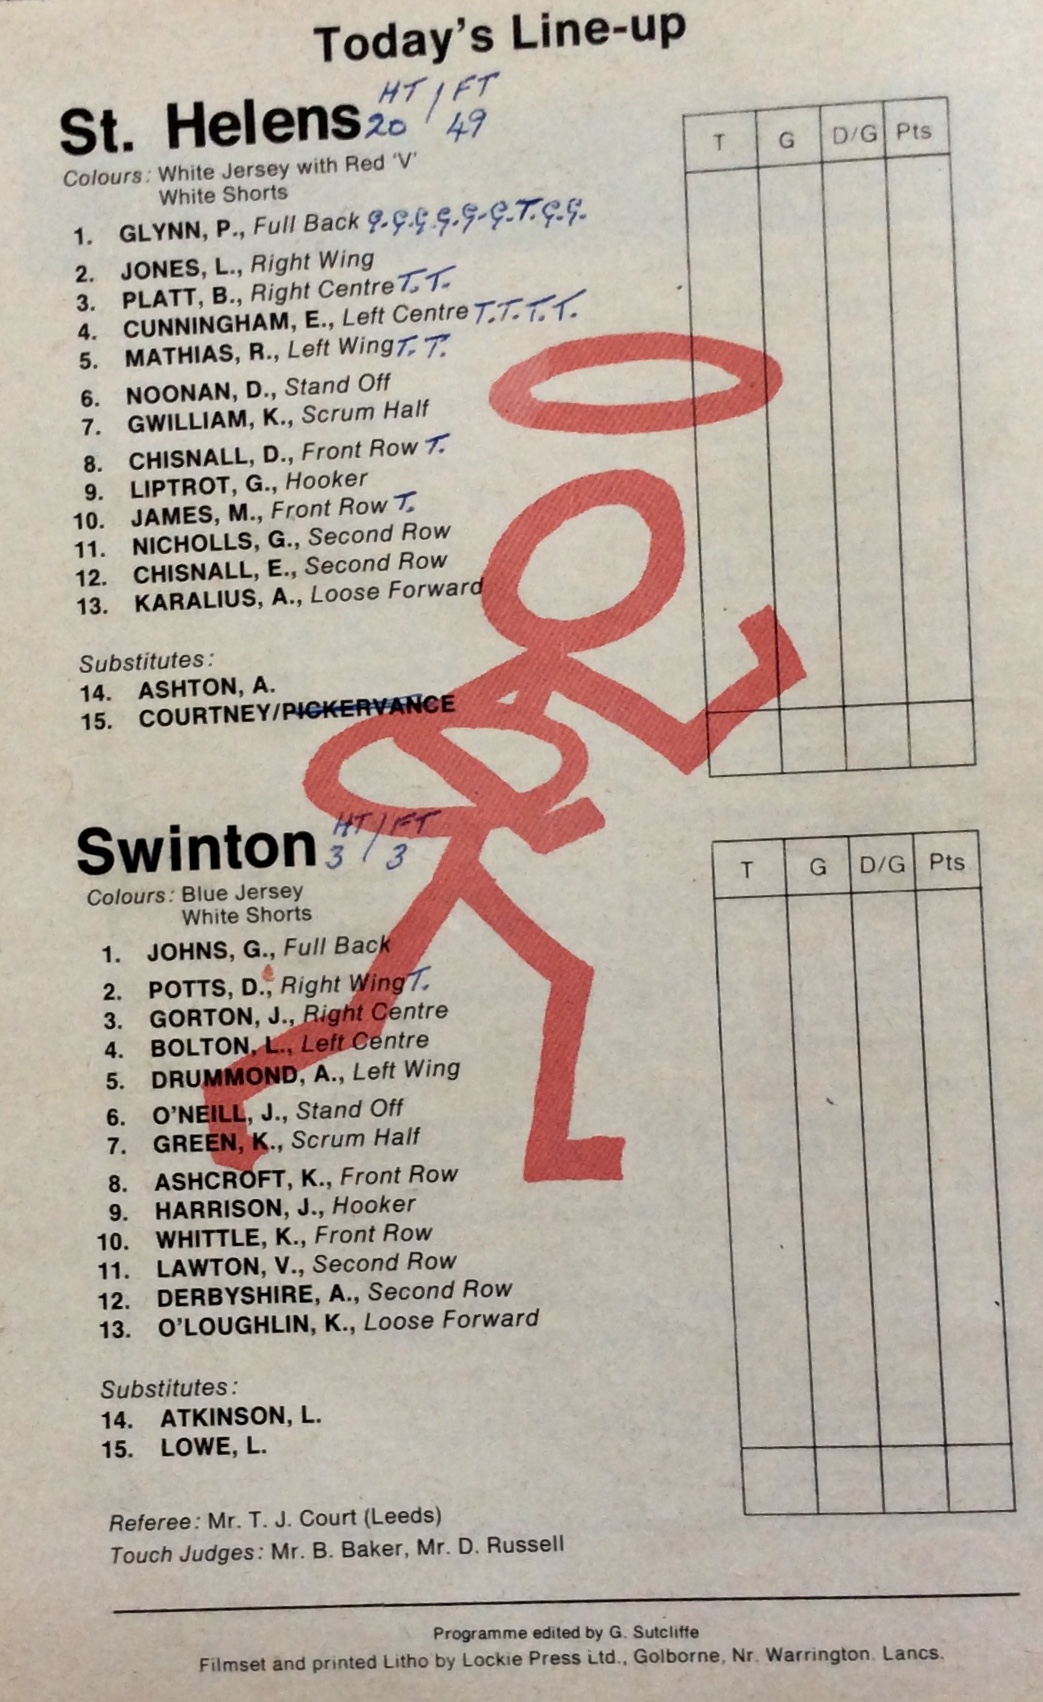 Today's Line-up
HT / FT
St. Helens 20 / 49
Colours: White Jersey with Red 'V'
White Shorts
1. GLYNN, P., Full Back G.G.G.G.G.G.T.G.G.
2. JONES, L., Right Wing
3. PLATT, B., Right Centre T.T.
4. CUNNINGHAM, E., Left Centre T.T.T.T.
5. MATHIAS, R., Left Wing T.T.
6. NOONAN, D., Stand Off
7. GWILLIAM, K., Scrum Half
8. CHISNALL, D., Front Row T.
9. LIPTROT, G., Hooker
10. JAMES, M., Front Row T.
11. NICHOLLS, G., Second Row
12. CHISNALL, E., Second Row
13. KARALIUS, A., Loose Forward
Substitutes:
14. ASHTON, A.
15. COURTNEY/PICKERVANCE
T G D/G Pts
HT / FT
Swinton 3 / 3
Colours: Blue Jersey
White Shorts
1. JOHNS, G., Full Back
2. POTTS, D., Right Wing T.
3. GORTON, J., Right Centre
4. BOLTON, L., Left Centre
5. DRUMMOND, A., Left Wing
6. O'NEILL, J., Stand Off
7. GREEN, K., Scrum Half
8. ASHCROFT, K., Front Row
9. HARRISON, J., Hooker
10. WHITTLE, K., Front Row
11. LAWTON, V., Second Row
12. DERBYSHIRE, A., Second Row
13. O'LOUGHLIN, K., Loose Forward
Substitutes:
14. ATKINSON, L.
15. LOWE, L.
T G D/G Pts
Referee: Mr. T. J. Court (Leeds)
Touch Judges: Mr. B. Baker, Mr. D. Russell
Programme edited by G. Sutcliffe
Filmset and printed Litho by Lockie Press Ltd., Golborne, Nr. Warrington. Lancs.